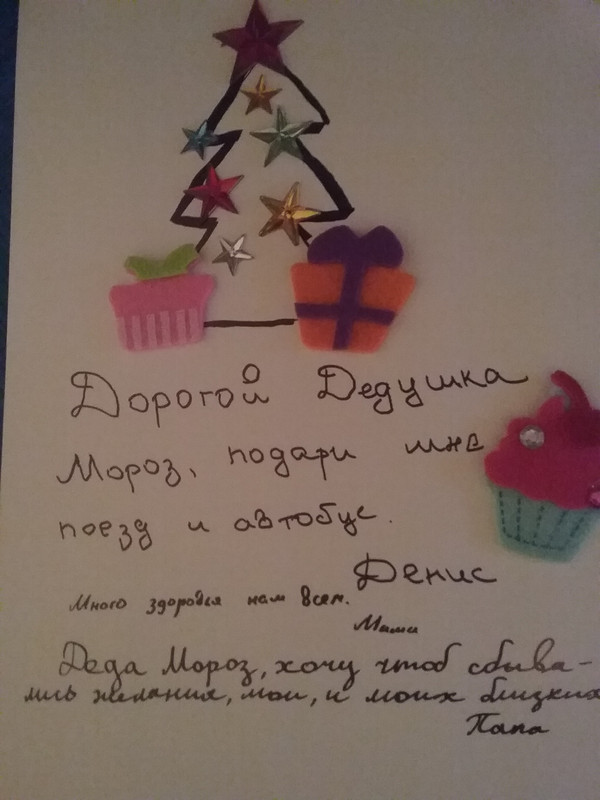 Дорогой Дедушка
Мороз, подари мне
поезд и автобус.
Денис
Много здоровья нам всем.
Мама
Деда Мороз, хочу чтоб сбыва-
лись желания, мои, и моих близких
Папа